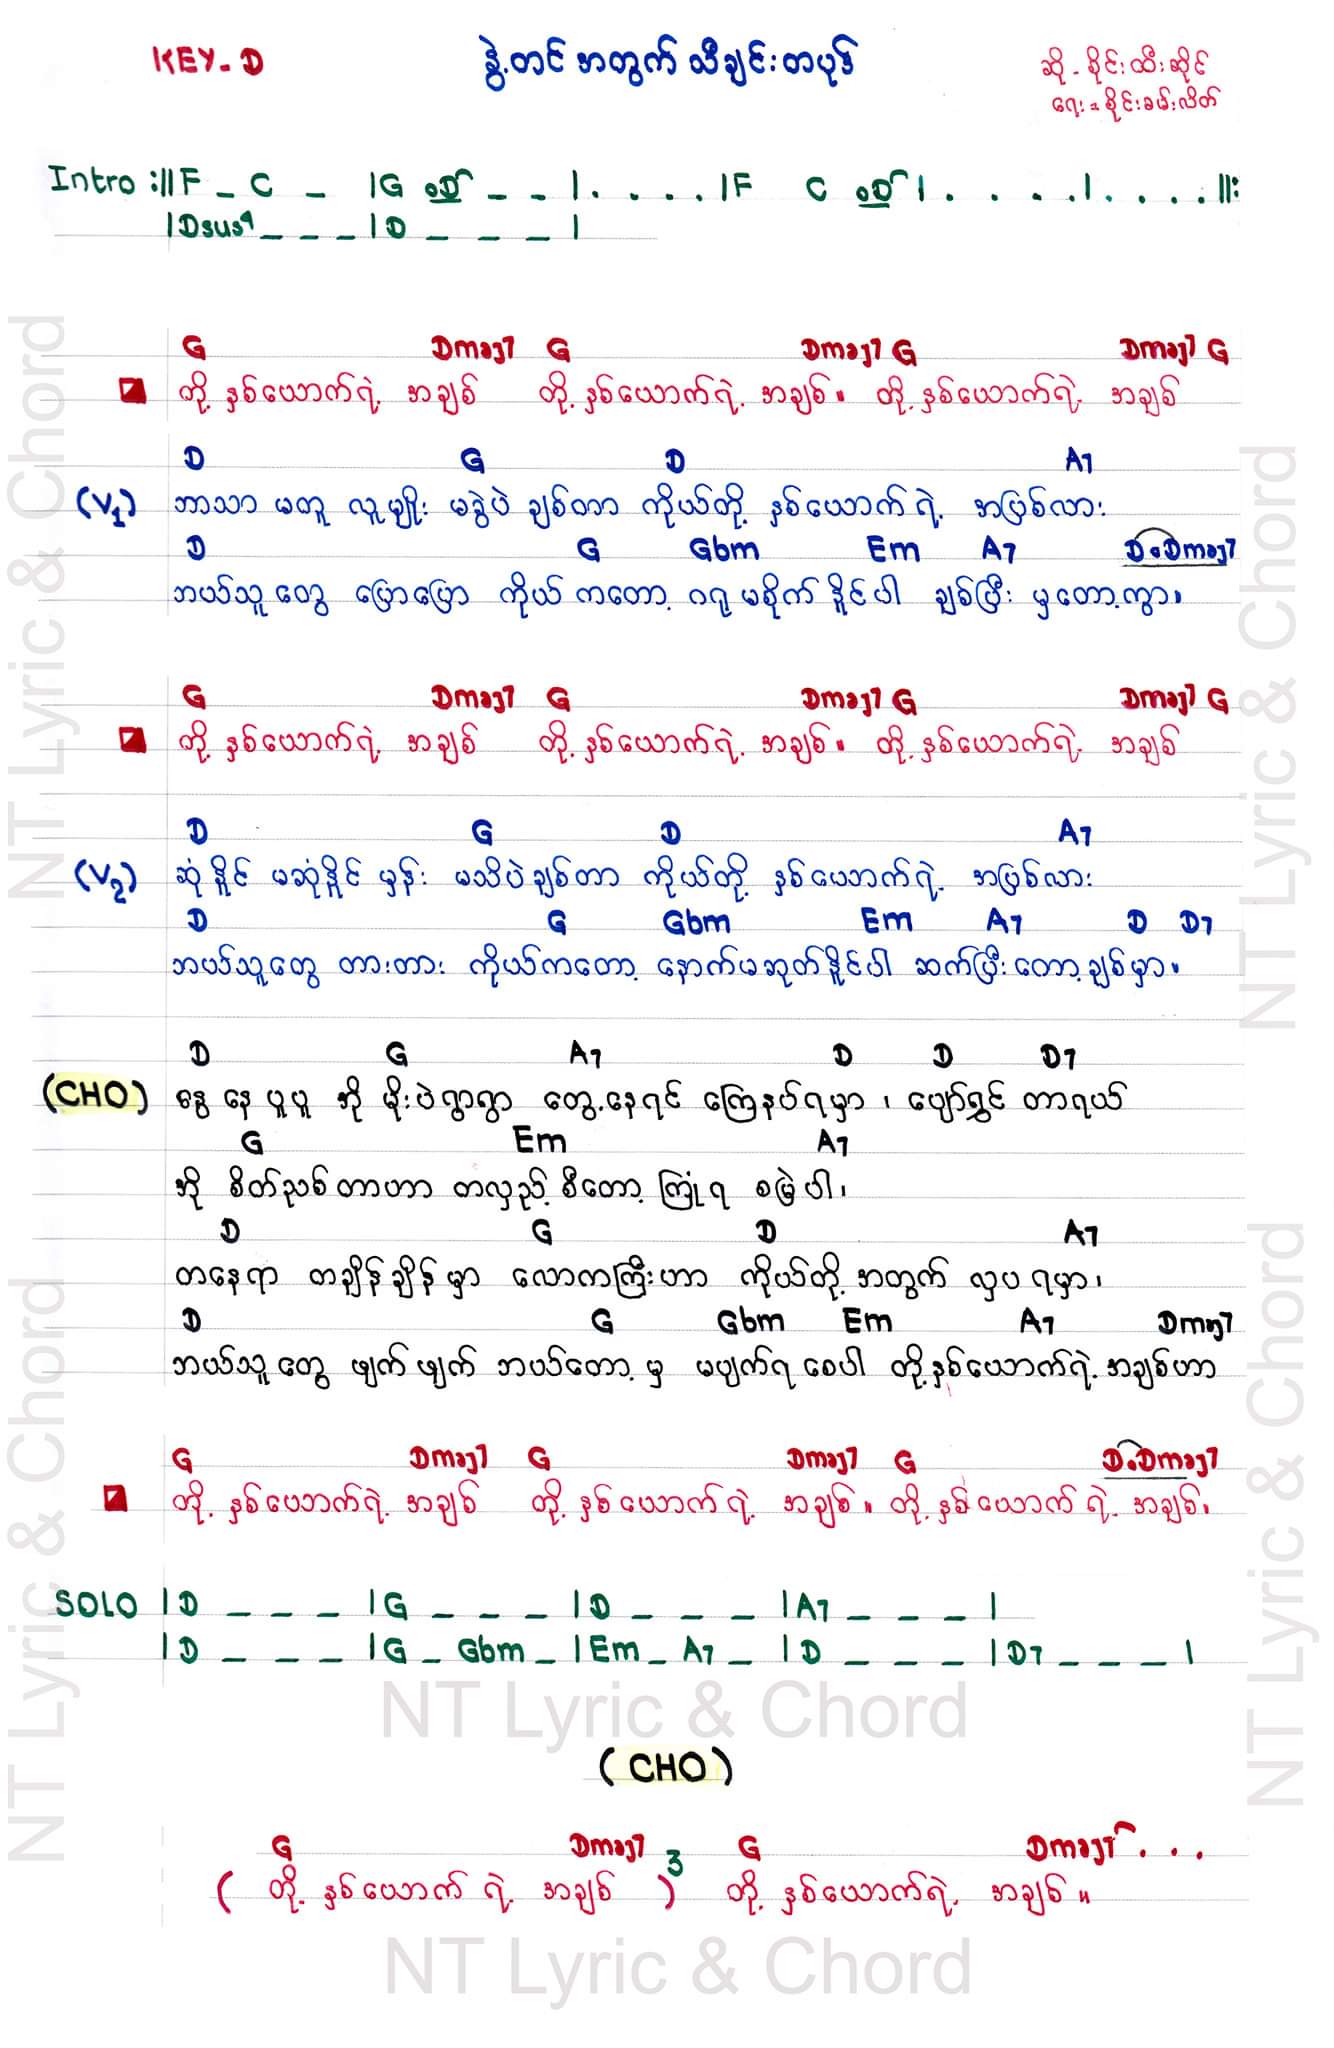 KEY - D
နွဲ့တင် အတွက် သီချင်းတပုဒ်
ဆို - စိုင်းထီးဆိုင်
ရေး = စိုင်းခမ်းလိတ်
Intro :|| F _ C _ | G . D _ _ | . . . . | F C . D | . . . . | . . . . ||:
| Dsus4 _ _ _ | D _ _ _ |
G Dmaj7 G Dmaj7 G Dmaj7 G
တို့ နှစ်ယောက်ရဲ့ အချစ် တို့ နှစ်ယောက်ရဲ့ အချစ်။ တို့ နှစ်ယောက်ရဲ့ အချစ်
D G D A7
(V1) ဘာသာ မတူ လူမျိုး မခွဲပဲ ချစ်တာ ကိုယ်တို့ နှစ်ယောက်ရဲ့ အပြစ်လား
D G Gbm Em A7 D . Dmaj7
ဘယ်သူတွေ ပြောပြော ကိုယ် ကတော့ ဂရု မစိုက် နိူင်ပါ ချစ်ပြီး မှတော့ကွာ။
G Dmaj7 G Dmaj7 G Dmaj7 G
တို့ နှစ်ယောက်ရဲ့ အချစ် တို့ နှစ်ယောက်ရဲ့ အချစ်။ တို့ နှစ်ယောက်ရဲ့ အချစ်
D G D A7
(V2) ဆုံနိူင် မဆုံနိူင် မှန်း မသိပဲချစ်တာ ကိုယ်တို့ နှစ်ယောက်ရဲ့ အပြစ်လား
D G Gbm Em A7 D D7
ဘယ်သူတွေ တားတား ကိုယ်ကတော့ နောက်မဆုတ်နိူင်ပါ ဆက်ပြီးတော့ချစ်မှာ။
D G A7 D D D7
(CHO) နွေ နေ ပူပူ အို မိုးပဲရွာရွာ တွေ့နေရင် ကြေနပ်ရမှာ ၊ ပျော်ရွှင် တာရယ်
G Em A7
အို စိတ်ညစ်တာဟာ တလှည့်စီတော့ ကြုံရ စမြဲပါ၊
D G D A7
တနေရာ တချိန်ချိန်မှာ လောကကြီးဟာ ကိုယ်တို့ အတွက် လှပ ရမှာ၊
D G Gbm Em A7 Dmaj7
ဘယ်သူတွေ ဖျက်ဖျက် ဘယ်တော့မှ မပျက်ရစေပါ တို့နှစ်ယောက်ရဲ့ အချစ်ဟာ
G Dmaj7 G Dmaj7 G D . Dmaj7
တို့ နှစ်ယောက်ရဲ့ အချစ် တို့ နှစ်ယောက်ရဲ့ အချစ်။ တို့ နှစ်ယောက်ရဲ့ အချစ်၊
SOLO | D _ _ _ | G _ _ _ | D _ _ _ | A7 _ _ _ |
| D _ _ _ | G _ Gbm _ | Em _ A7 _ | D _ _ _ | D7 _ _ _ |
NT Lyric & Chord
(CHO)
G Dmaj7 G Dmaj7 . . .
( တို့ နှစ်ယောက်ရဲ့ အချစ် )3 တို့ နှစ်ယောက်ရဲ့ အချစ် ။
NT Lyric & Chord
NT Lyric & Chord
NT Lyric & Chord
NT Lyric & Chord
NT Lyric & Chord